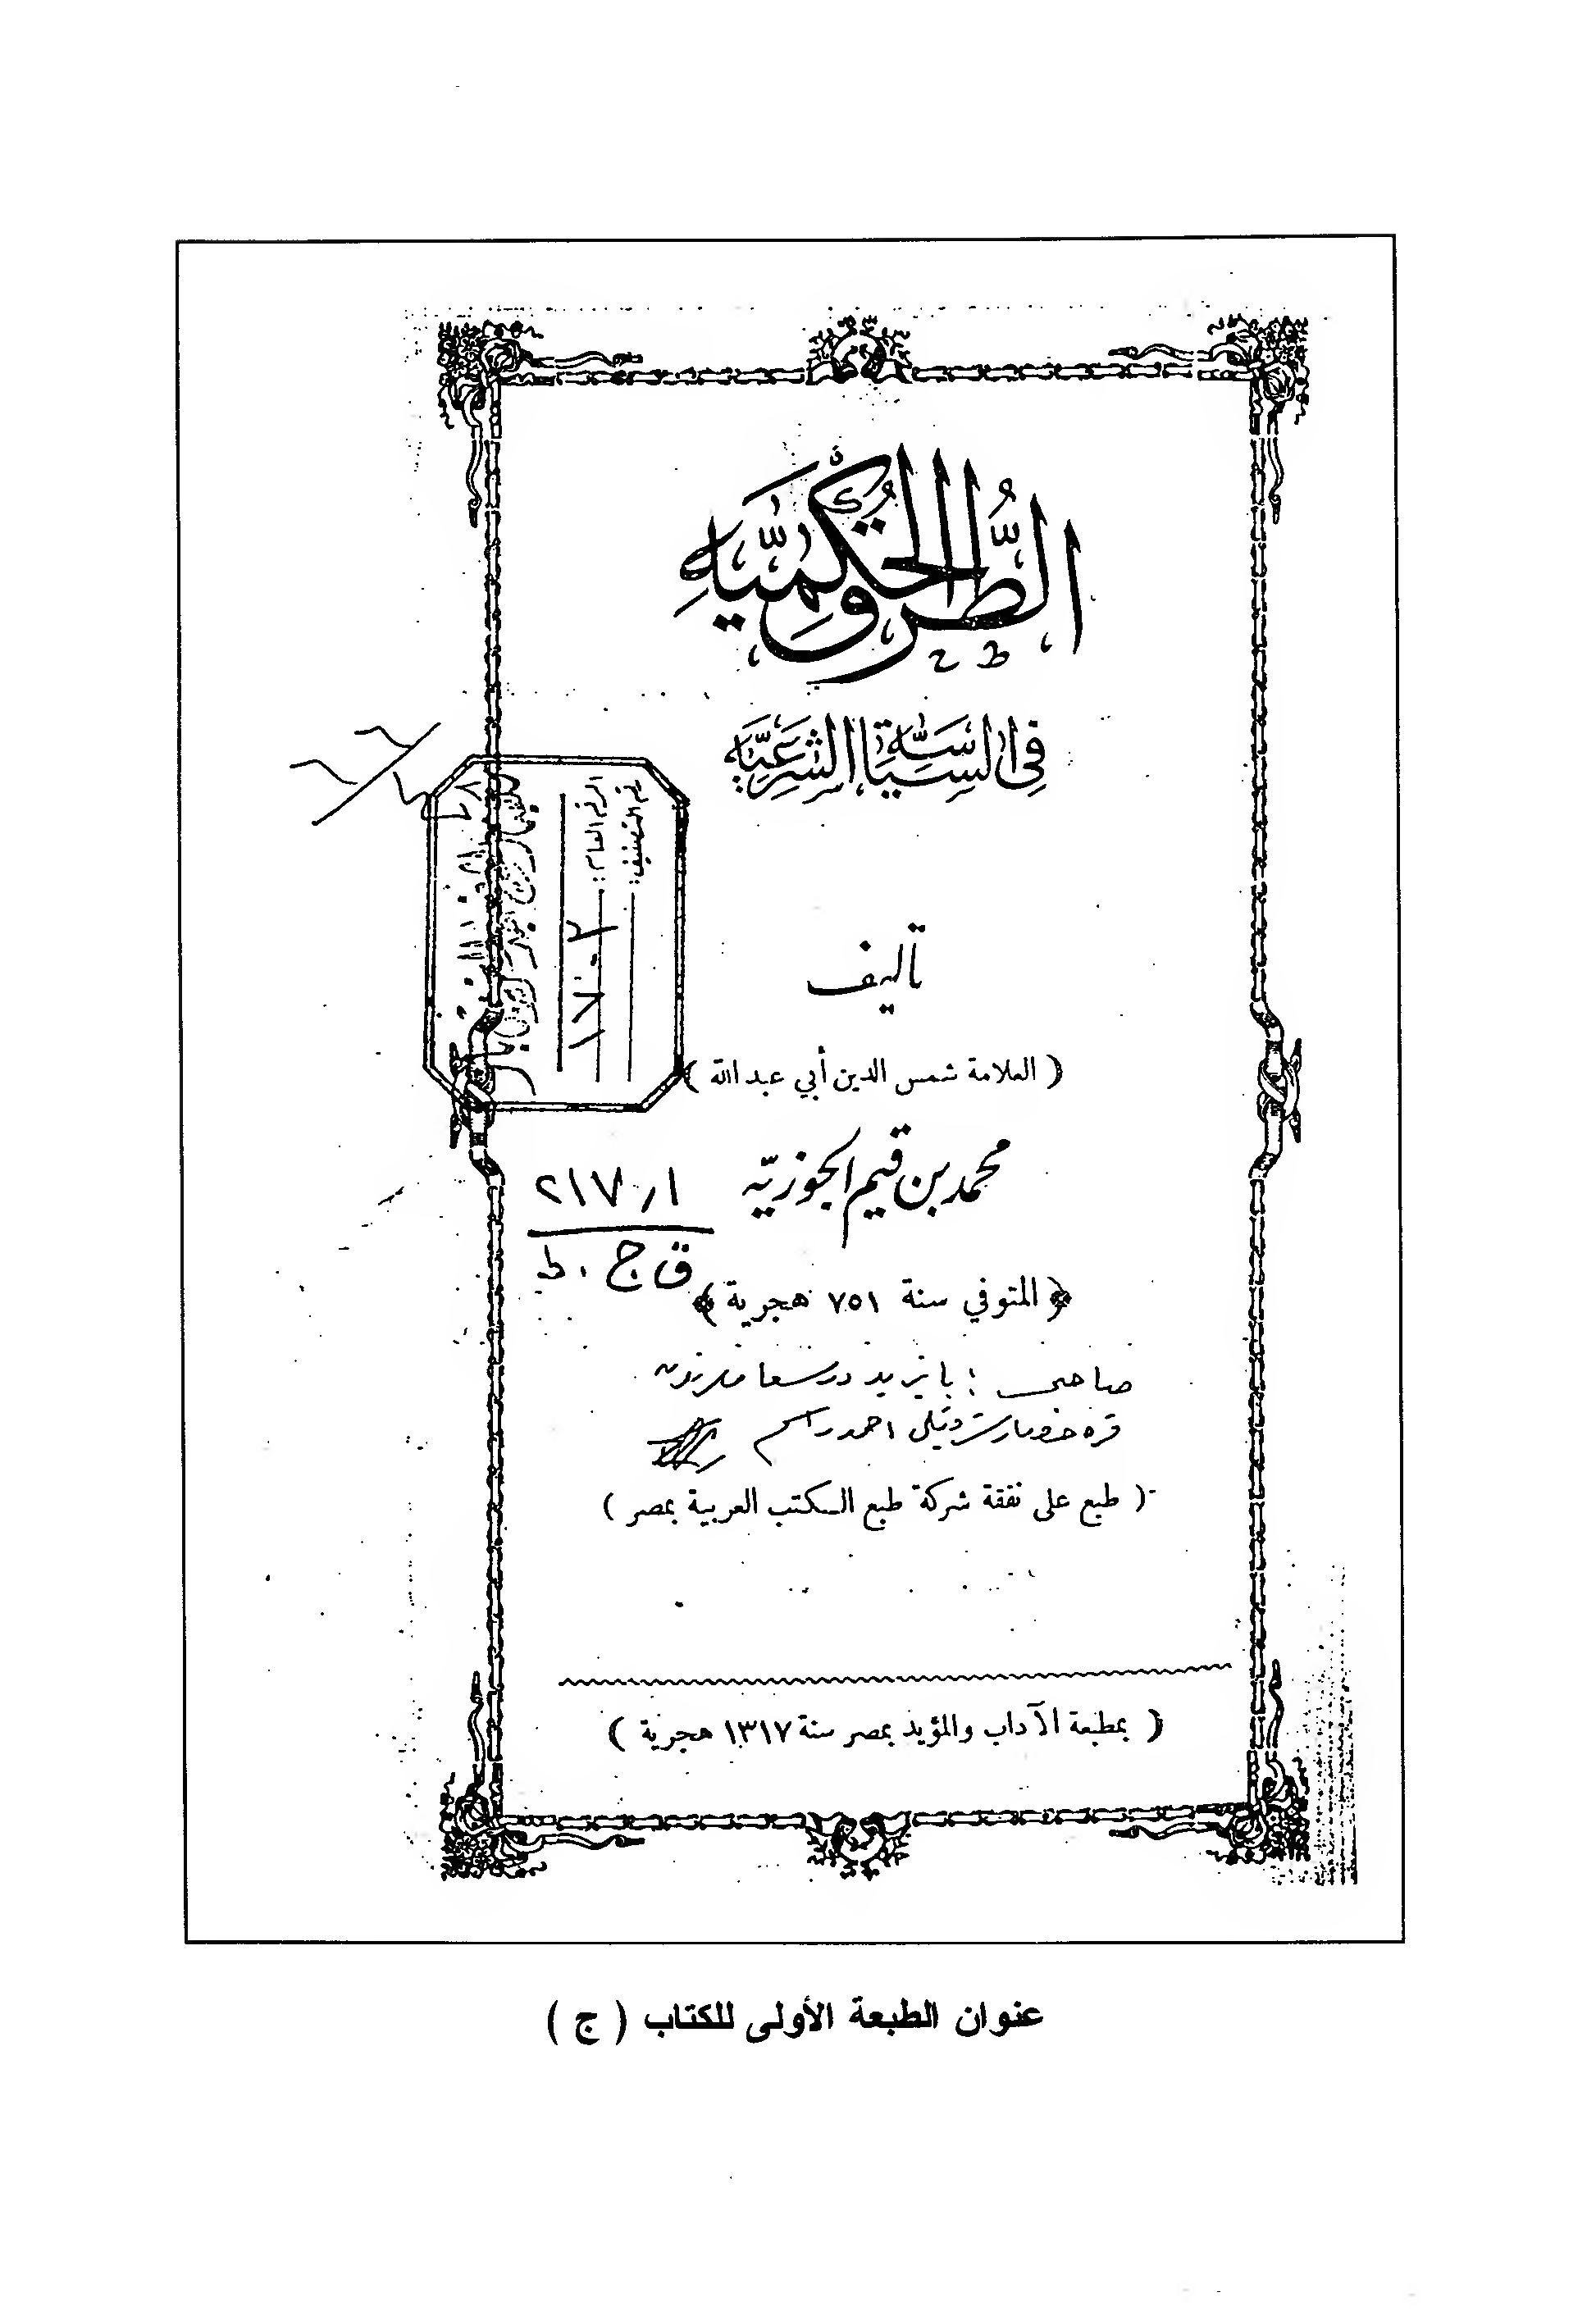 الطُّرُق الحُكْمِيَّه
فِي السِّيَاسَةِ الشَّرْعِيَّه
تأليف
( العلامة شمس الدين أبي عبد الله )
محمد بن قيم الجوزيّه
﴿ المتوفي سنة ٧٥١ هجرية ﴾
( طبع على نفقة شركة طبع الكتب العربية بمصر )
( بمطبعة الآداب والمؤيد بمصر سنة ١٣١٧ هجرية )
رقم التصنيف:
الرقم العام: ١٧٠٣
٢١٧٫١
ق ج . ط
عنوان الطبعة الأولى للكتاب ( ج )